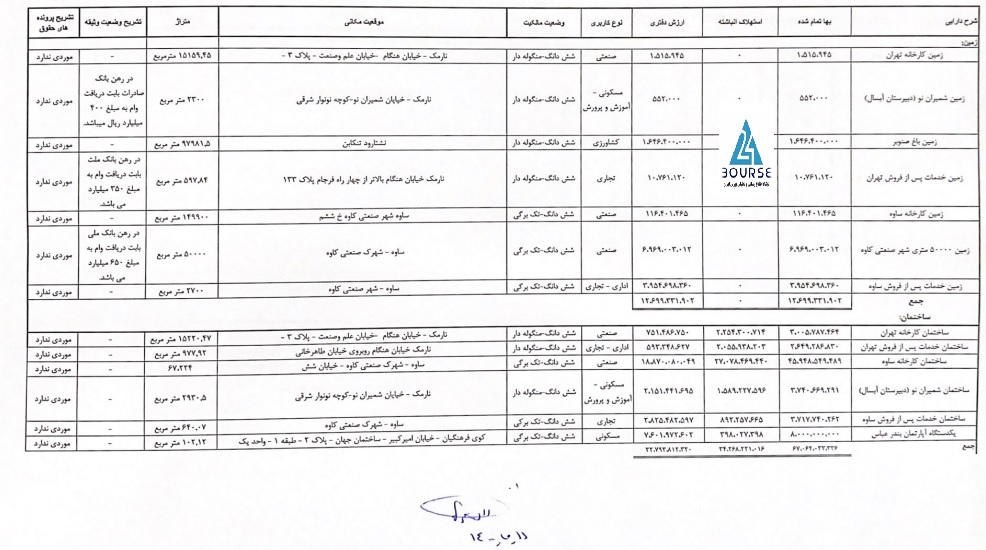 شرح دارایی | بها تمام شده | استهلاک انباشته | ارزش دفتری | نوع کاربری | وضعیت مالکیت | موقعیت مکانی | متراژ | تشریح وضعیت وثیقه | تشریح پرونده های حقوق
زمین:
زمین کارخانه تهران | ۱.۵۱۵.۹۴۵ | ۰ | ۱.۵۱۵.۹۴۵ | صنعتی | شش دانگ-منگوله دار | نارمک - خیابان هنگام -خیابان علم وصنعت - پلاک ۳ - | ۱۵۱۵۹.۴۵ مترمربع | - | موردی ندارد
زمین شمیران نو (دبیرستان آبسال) | ۵۵۲.۰۰۰ | ۰ | ۵۵۲.۰۰۰ | مسکونی - آموزش و پرورش | شش دانگ-منگوله دار | نارمک - خیابان شمیران نو-کوچه نونوار شرقی | ۲۳۰۰ متر مربع | در رهن بانک صادرات بابت دریافت وام به مبلغ ۴۰۰ میلیارد ریال میباشد. | موردی ندارد
زمین باغ صنوبر | ۱.۶۴۶.۴۰۰.۰۰۰ | ۱.۶۴۶.۴۰۰.۰۰۰ | کشاورزی | شش دانگ-منگوله دار | نشتارود تنکابن | ۹۷۹۸۱.۵ متر مربع | - | موردی ندارد
زمین خدمات پس از فروش تهران | ۱۰.۷۶۱.۱۲۰ | ۱۰.۷۶۱.۱۲۰ | تجاری | شش دانگ-منگوله دار | نارمک خیابان هنگام بالاتر از چهار راه فرجام پلاک ۱۳۳ | ۵۹۷.۸۴ متر مربع | در رهن بانک ملت بابت دریافت وام به مبلغ ۳۵۰ میلیارد می باشد. | موردی ندارد
زمین کارخانه ساوه | ۱۱۶.۴۰۱.۴۶۵ | ۰ | ۱۱۶.۴۰۱.۴۶۵ | صنعتی | شش دانگ-تک برگی | ساوه شهر صنعتی کاوه خ ششم | ۱۴۹۹۰۰ متر مربع | - | موردی ندارد
زمین ۵۰۰۰۰ متری شهر صنعتی کاوه | ۶.۹۶۹.۰۰۳.۰۱۲ | ۰ | ۶.۹۶۹.۰۰۳.۰۱۲ | صنعتی | شش دانگ-تک برگی | ساوه - شهرک صنعتی کاوه | ۵۰۰۰۰ متر مربع | در رهن بانک ملی بابت دریافت وام به مبلغ ۶۵۰ میلیارد می باشد. | موردی ندارد
زمین خدمات پس از فروش ساوه | ۳.۹۵۴.۶۹۸.۳۶۰ | ۰ | ۳.۹۵۴.۶۹۸.۳۶۰ | اداری - تجاری | شش دانگ-تک برگی | ساوه - شهر صنعتی کاوه | ۲۷۰۰ متر مربع | - | موردی ندارد
جمع | ۱۲.۶۹۹.۳۳۱.۹۰۲ | ۰ | ۱۲.۶۹۹.۳۳۱.۹۰۲
ساختمان:
ساختمان کارخانه تهران | ۳.۰۰۵.۷۸۷.۴۶۴ | ۲.۲۵۴.۳۰۰.۷۱۴ | ۷۵۱.۴۸۶.۷۵۰ | صنعتی | شش دانگ-منگوله دار | نارمک - خیابان هنگام -خیابان علم وصنعت - پلاک ۳ - | ۱۵۲۲۰.۴۷ متر مربع | - | موردی ندارد
ساختمان خدمات پس از فروش تهران | ۲.۶۴۹.۲۸۶.۸۳۰ | ۲.۰۵۵.۹۳۸.۲۰۳ | ۵۹۳.۳۴۸.۶۲۷ | اداری - تجاری | شش دانگ-منگوله دار | نارمک خیابان هنگام روبروی خیابان طاهرخانی | ۹۷۷.۹۲ متر مربع | - | موردی ندارد
ساختمان کارخانه ساوه | ۴۵.۹۴۸.۵۴۹.۴۸۹ | ۲۷.۰۷۸.۴۶۹.۴۴۰ | ۱۸.۸۷۰.۰۸۰.۰۴۹ | صنعتی | شش دانگ-تک برگی | ساوه - شهرک صنعتی کاوه - خیابان شش | ۶۷.۲۲۴ | - | موردی ندارد
ساختمان شمیران نو (دبیرستان آبسال) | ۳.۷۴۰.۶۶۹.۲۹۱ | ۱.۵۸۹.۲۲۷.۵۹۶ | ۲.۱۵۱.۴۴۱.۶۹۵ | مسکونی - آموزش و پرورش | شش دانگ-منگوله دار | نارمک - خیابان شمیران نو-کوچه نونوار شرقی | ۲۹۳۰.۵ متر مربع | - | موردی ندارد
ساختمان خدمات پس از فروش ساوه | ۳.۷۱۷.۷۴۰.۲۶۲ | ۸۹۲.۲۵۷.۶۶۵ | ۲.۸۲۵.۴۸۲.۵۹۷ | تجاری | شش دانگ-تک برگی | ساوه - شهرک صنعتی کاوه | ۶۴۰.۰۷ متر مربع | - | موردی ندارد
یکدستگاه آپارتمان بندر عباس | ۸.۰۰۰.۰۰۰.۰۰۰ | ۳۹۸.۰۲۷.۳۹۸ | ۷.۶۰۱.۹۷۲.۶۰۲ | مسکونی | شش دانگ-تک برگی | کوی فرهنگیان - خیابان امیرکبیر - ساختمان جهان - پلاک ۲ - طبقه ۱ - واحد یک | ۱۰۲.۱۲ متر مربع | - | موردی ندارد
جمع | ۶۷.۰۶۲.۰۳۳.۳۳۶ | ۳۴.۲۶۸.۲۲۱.۰۱۶ | ۳۲.۷۹۳.۸۱۲.۳۲۰
BOURSE